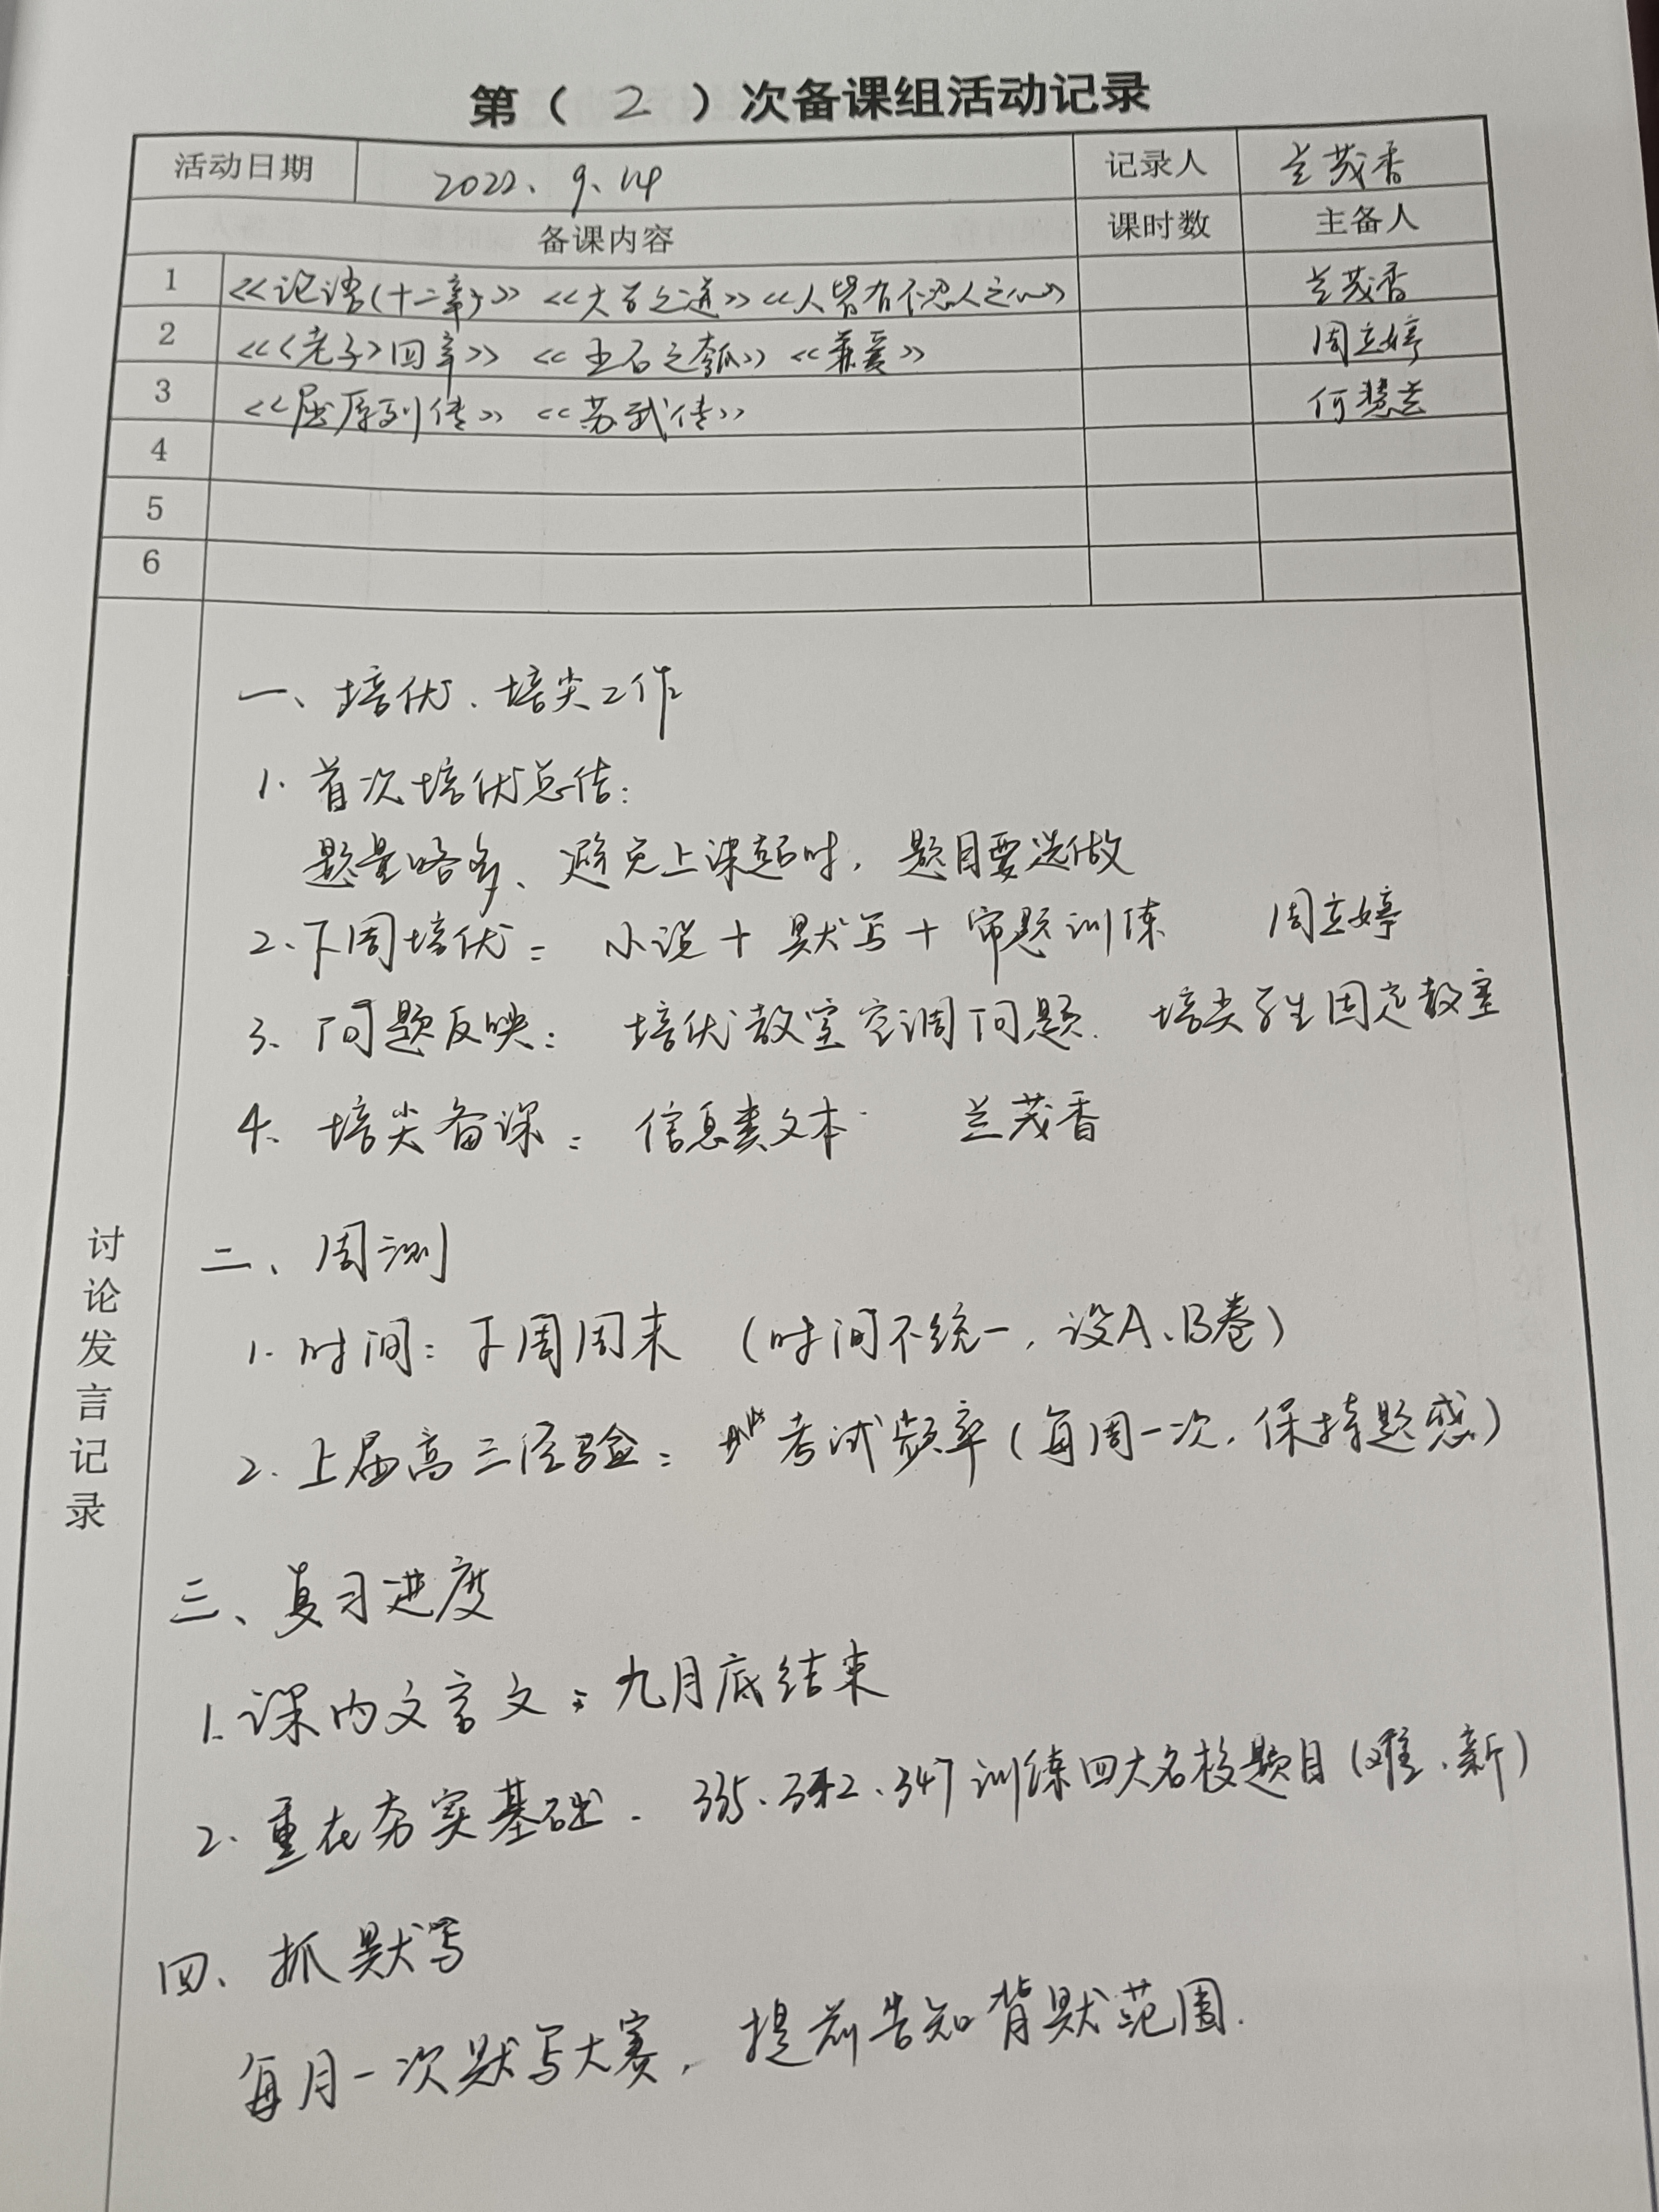 第（ 2 ）次备课组活动记录
活动日期 2022、9、14 记录人 兰茂香
备课内容 课时数 主备人
1 《论语(十二章)》《大学之道》《人皆有不忍人之心》 兰茂香
2 《〈老子〉四章》《五石之瓠》《兼爱》 周立婷
3 《屈原列传》《苏武传》 何慧兰
4
5
6
讨论发言记录
一、培优、培尖工作
1. 首次培优总结：
题量略多、避免上课超时，题目要选做
2. 下周培优： 小说+默写+审题训练 周立婷
3、问题反映： 培优教室空调问题. 培尖学生固定教室
4、培尖备课： 信息类文本 兰茂香
二、周测
1. 时间：下周周末 （时间不统一，设A、B卷）
2. 上届高三经验： 考试频率（每周一次，保持题感）
三、复习进度
1. 课内文言文：九月底结束
2. 重在夯实基础. 335、342、347训练四大名校题目（难、新）
四、抓默写
每月一次默写大赛，提前告知背默范围.